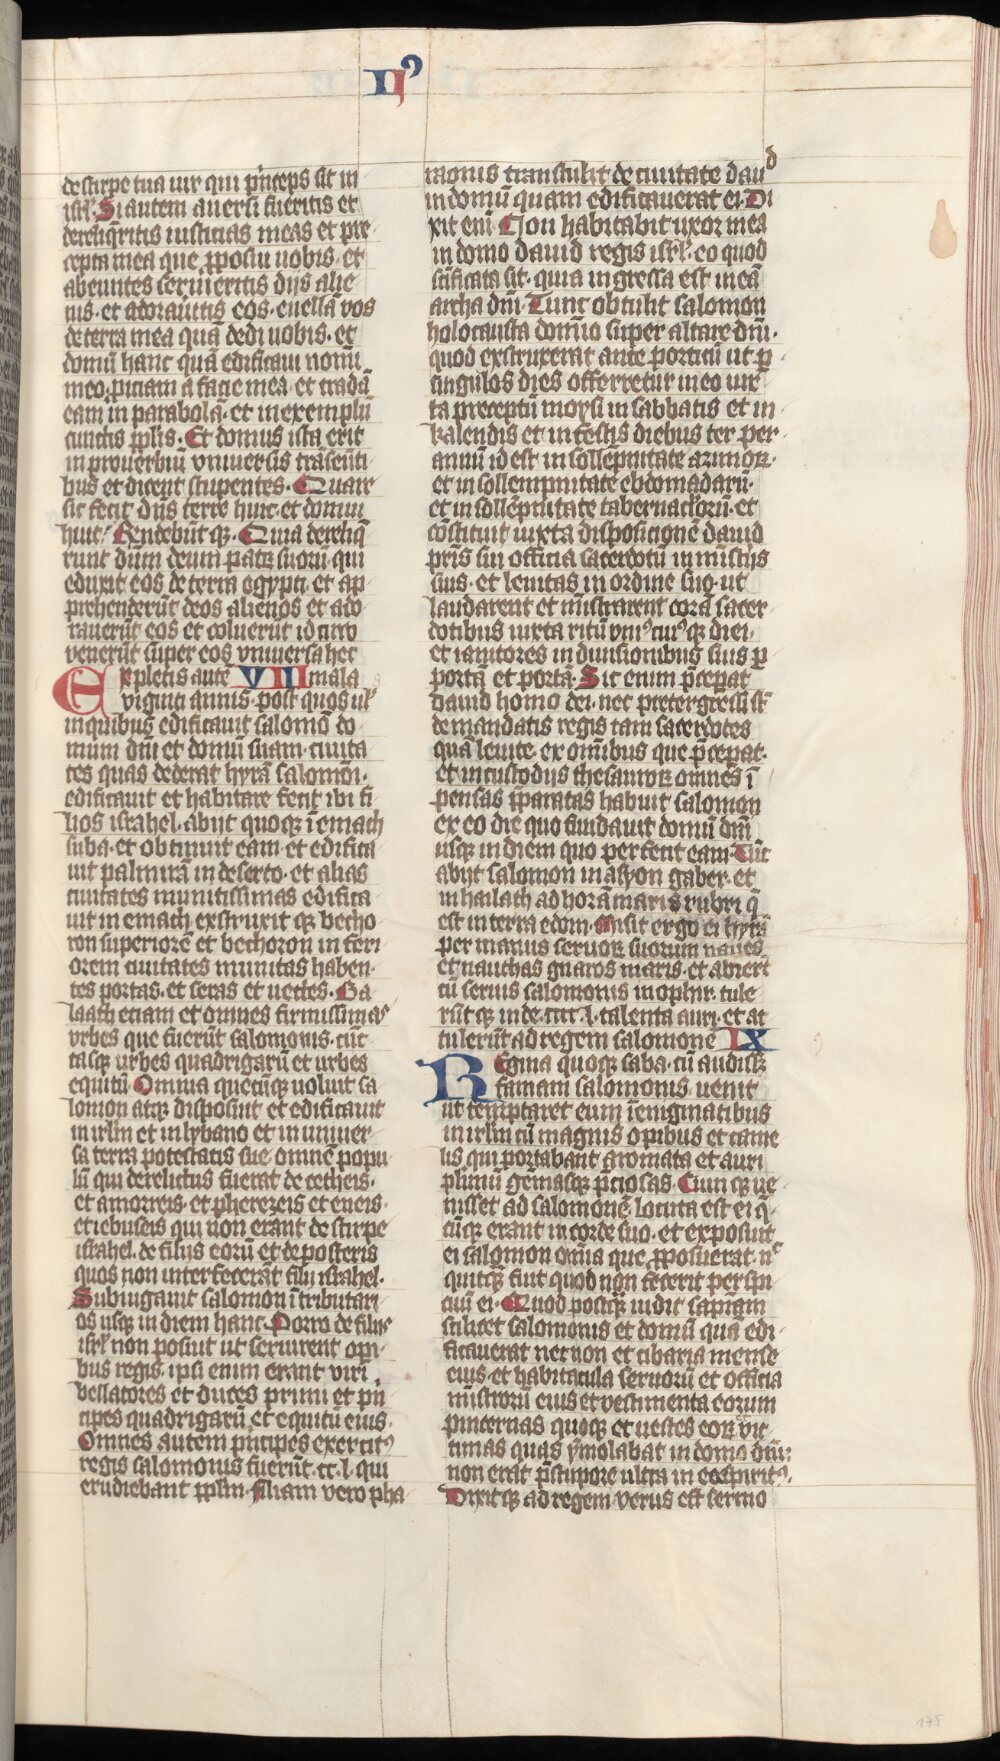 IIꝰ
de stirpe tua uir qui pͥnceps sit in
isrl̕· Si autem auersi fueritis et
dereliq̄ritis iusticias meas et pre
cepta mea que ꝓposui uobis· et
abeuntes seruieritis dijs alie
nis· et adoraūitis eos· euellā vos
de terra mea quā dedi uobis· et
domū hanc quā edificaui nomi
meo· ꝓiciam a facie mea· et tradā
eam in parabolā· et in exemplū
cunctis ꝓplis· Et domus ista erit
in prouerbiū vniuersis trāseūti
bus et dicent stupentes· Quare
sic fecit dn̄s terre huic et domui
huic· Rn̄debūtqꝫ· Quia dereliq̄
runt dūm deum patꝝ suorū qui
eduxit eos de terra egypti· et ap
prehenderūt deos alienos et ado
rauerūt eos et coluerūt idcirco
venerūt super eos vniuersa hec
Expletis autē VIII mala
viginti annis· post quos
in quibus edificauit salomō do
mum dn̄i et domū suam· ciuita
tes quas dederat hyrā salomōi·
edificauit et habitare fecit ibi fi
lios israhel· abijt quoqꝫ ī emach
suba· et obtinuit eam· et edifica
uit palmirā in deserto· et alias
ciuitates munitissimas edifica
uit in emach· exstruxitqꝫ becho
ron superiorē et bechoron in feri
orem ciuitates muratas haben
tes portas· et seras et uectes· Ba
laath eciam et omnes firmissimas
vrbes que fuerūt salomonis· cūc
tasqꝫ urbes quadrigarū et urbes
equitū Omnia quecūqꝫ uoluit sa
lomon atqꝫ disposuit et edificauit
in irlm̄ et in lybano et in uniuer
sa terra potestatis sue· omnē popu
lū qui derelictus fuerat de cetheis·
et amorreis· et pherezeis et eueis·
et iebuseis qui non erant de stirpe
israhel· de filijs eorū et de posteris
quos non interfecerāt filij israhel·
Subiugauit salomon ī tributari
os usqꝫ in diem hanc· Porro de filijs
isrl̕ non posuit ut seruirent opi
bus regis· ipsi enim erant viri
bellatores et duces primi et pͥn
cipes quadrigarū et equitū eius·
Omnes autem pͥncipes exercitꝰ
regis salomonis fuerūt· cc· l· qui
erudiebant ꝓplm· filiam vero pha
raonis transtulit de ciuitate dauͩ
in domū quam edificauerat ei· Di
xit enī Non habitabit uxor mea
in domo dauid regis isrl̕· eo quod
sc̄ificata sit· quia ingressa est in eā
archa dn̄i· Tunc obtulit salomon
holocausta domīo super altare dn̄i·
quod exstruxerat ante porticū ut ꝑ
singulos dies offerretur in eo iux
ta preceptū moysi in sabbatis et in
kalendis et in festis diebus ter per
annū id est in sollēpnitate azimoꝝ·
et in sollempnitate ebdomadarū·
et in sollēpnitate tabernaclorū· et
cōstituit iuxta disposicionē dauid
pr̄is sui officia sacerdotū in mīstijs
suis· et leuitas in ordine suo· ut
laudarent et mīstrarent corā sacer
dotibus iuxta ritū vniꝰcuiꝰqꝫ diei·
et ianitores in diuisionibus suis ꝑ
portā et portā· Sic enim p̄ceperat
dauid homo dei· nec pretergressi st̄
de mandatis regis tam sacerdotes
quā leuite· ex omībus que p̄ceperat·
et in custodijs thesauroꝝ omnēs ī
pensas p̄paratas habuit salomon
ex eo die quo fundauit domū dn̄i
usqꝫ in diem quo perfecit eam· Tūc
abijt salomon in asyon gaber· et
in hailath ad horā maris rubri q̄
est in terra edom· Misit ergo ei hyrā
per manus seruoꝝ suorum naues
et nauthas gnaros maris· et abierūt
cū seruis salomonis in ophir· tule
rūtqꝫ inde· cccc· l· talenta auri· et at
tulerūt ad regem salomonē IX
Regina quoqꝫ saba· cū audisset
famam salomonis· uenit
ut temptaret eum ī enigmatibus
in irlm̄ cū magnis opibus et came
lis qui portabant aromata et auri
plimū gēmasqꝫ p̄ciosas· Cum qꝫ ue
nisset ad salomonē· locuta est ei q̄
cūqꝫ erant in corde suo· et exposuit
ei salomon omīa que ꝓposuerat· nͨ
quitqꝫ fuit quod non fecerit perspi
cuū ei· Quod postqꝫ uidit sapīam
scilicet salomonis et domū quā edi
ficauerat nec non et cibaria mense
eius· et habitacula seruorū et officia
mīstrorū eius et vestimenta eorum
pincernas quoqꝫ et uestes eoꝝ vic
timas quas ymolabat in domo dn̄i:
non erat p̄ stupore ultra in ea spiritꝰ·
Dixitqꝫ ad regem· verus est sermo
175